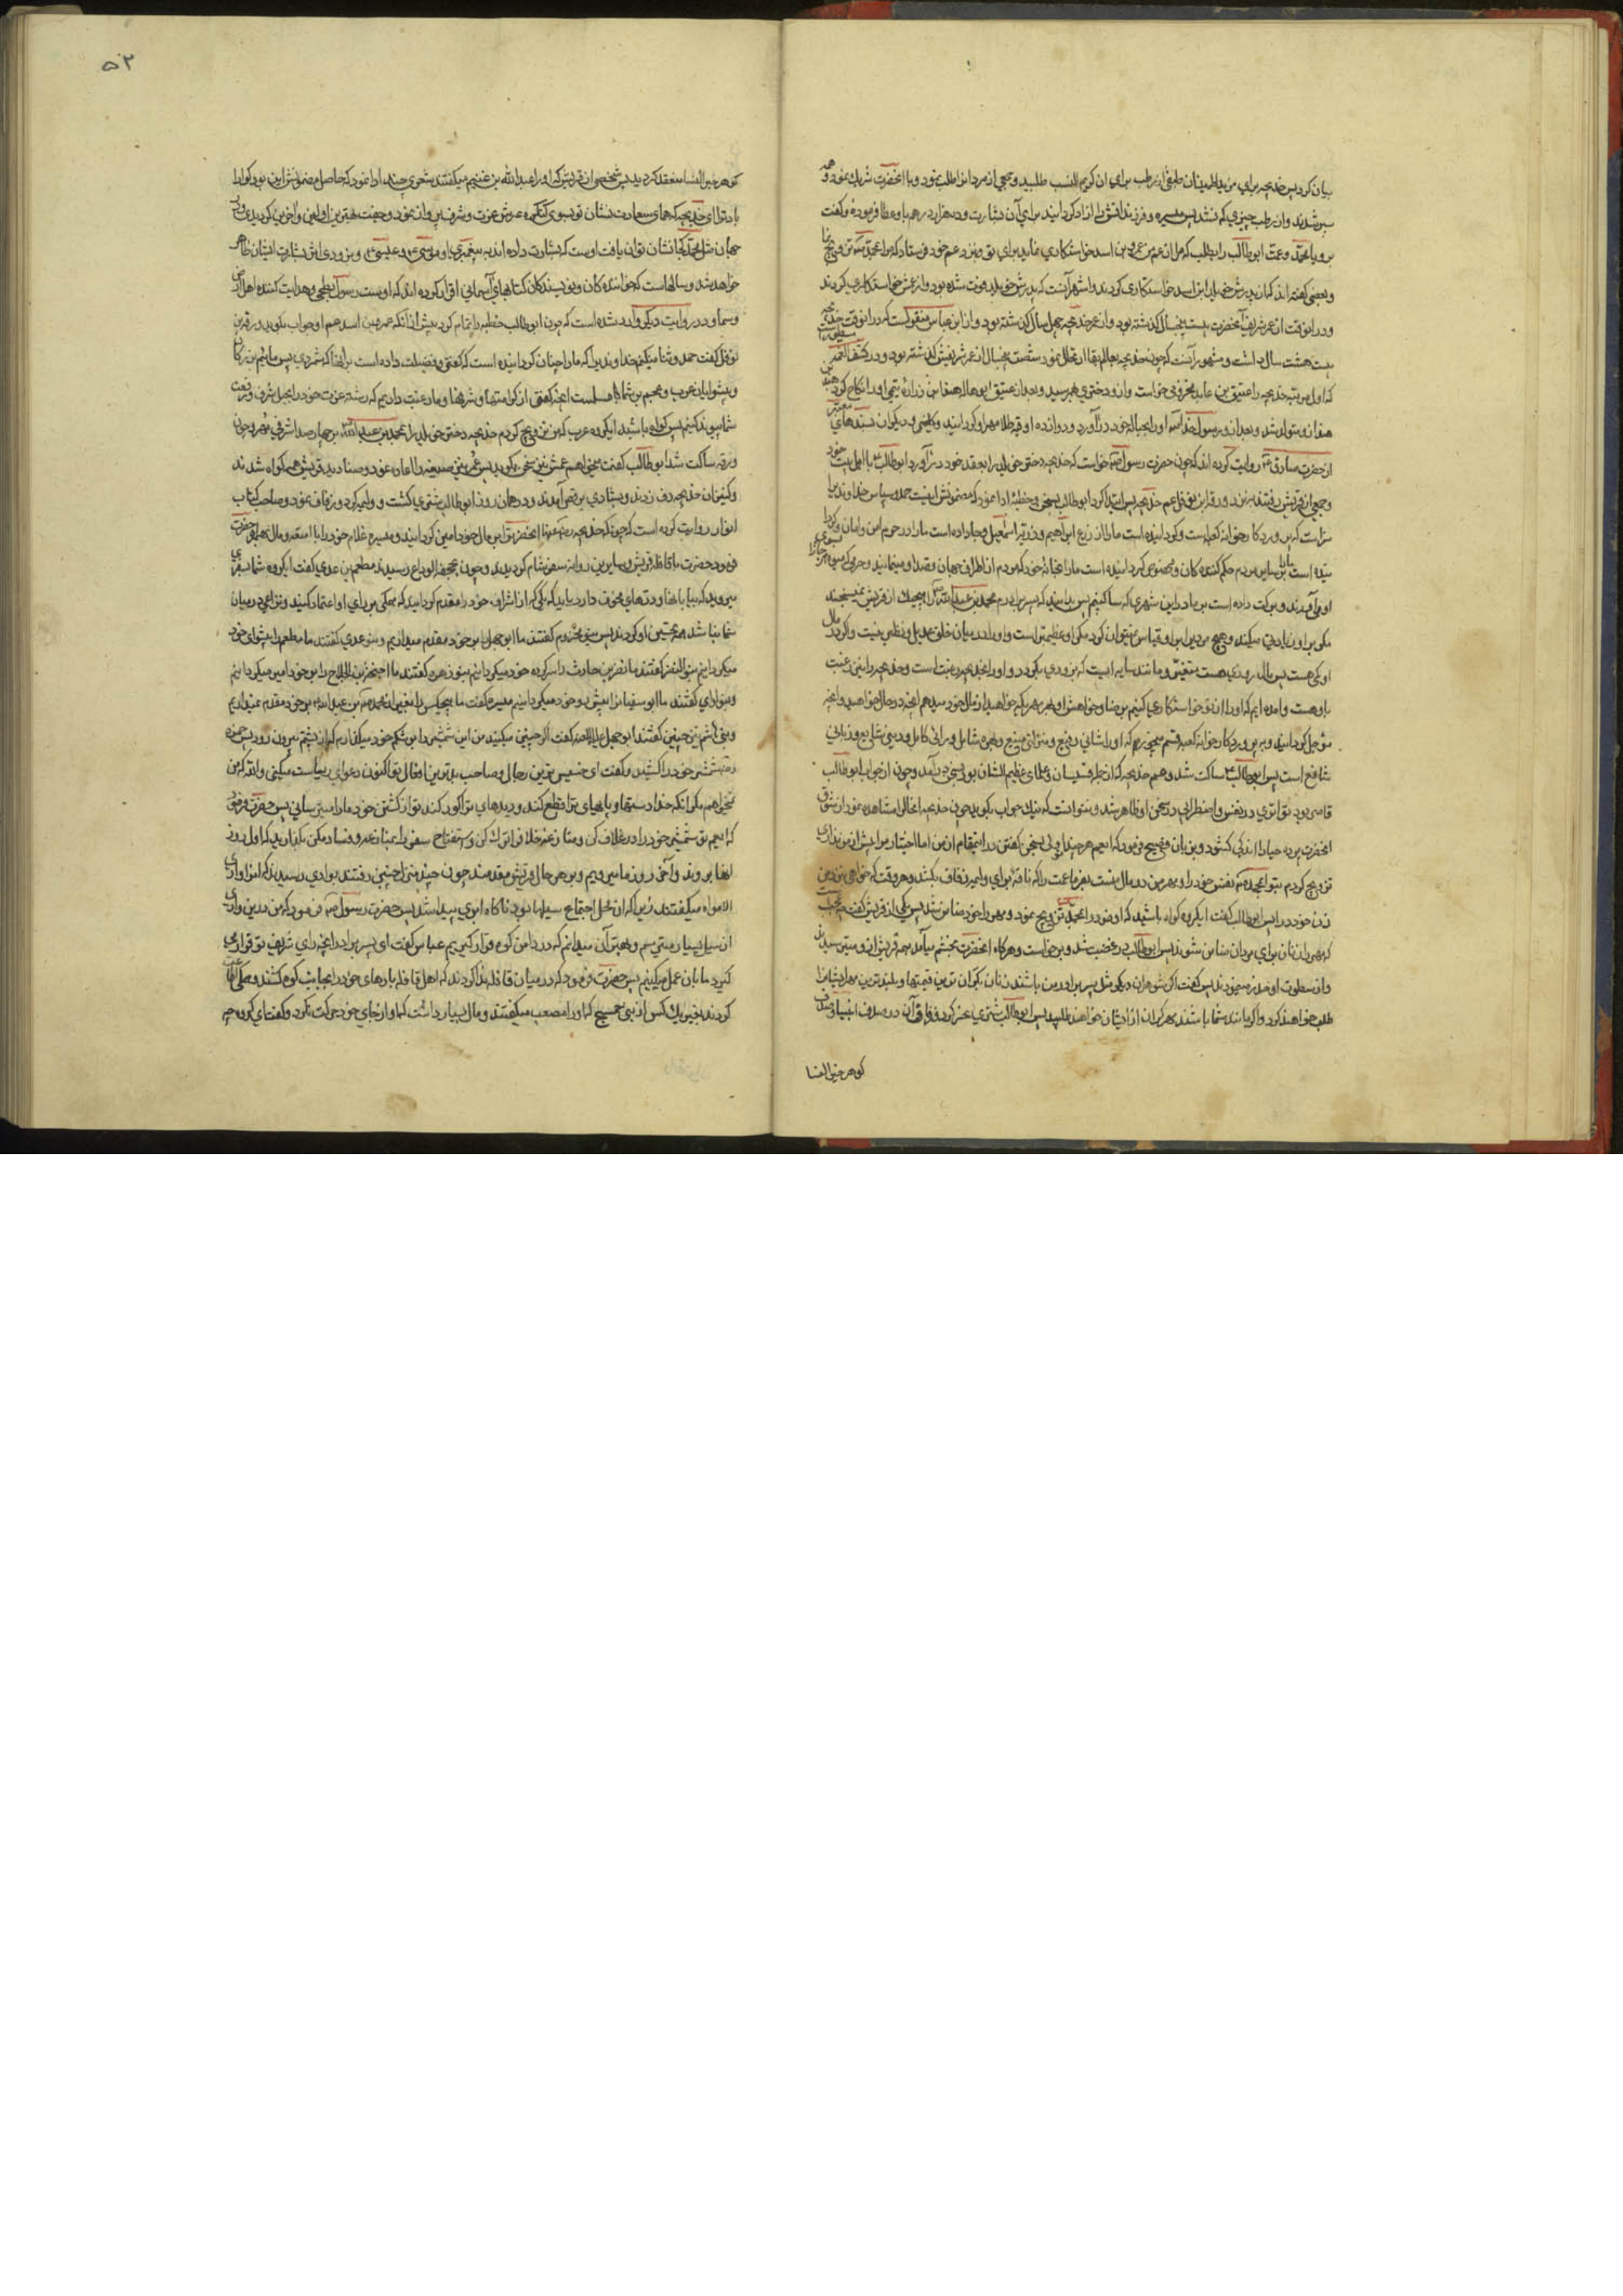 بیان کرد پس خدیجه برای طبقی از رطب برای آن کریم النسب طلبید و جمعی از مردانرا طلب نمود و با آنحضرت شریک نمود و همه
سیر شدند و از رطب چیزی کم نشد پس میسره و فرزندانش را آزاد گردانید برای آن بشارت و ده هزار درهم باو عطا فرموده و گفت
برو یا محمد و عمت ابوطالب را بطلب که مرا از عم من عمرو بن اسد خواستگاری نماید برای تو و بنزد عم خود فرستاد که مرا بمحمد تزویج نما
و بعضی گفته اند که پدرش خویلد ابن اسد خواستگاری کردند و اشهر آنست که پدرش خویلد فوت شده بود و از عمش خواستگاری کردند
و در انوقت از عمر شریف آنحضرت بیست و پنجسال گذشته بود و از عمر خدیجه چهل سال گذشته بود و از ابن عباس منقولست که در انوقت خدیجه
بیست هشت سال داشت و مشهور آنست که چون خدیجه بعالم بقا ارتحال نمود شصت پنجسال از عمر شریفش گذشته بود و در کشف الغمه مسطور است
که اول مرتبه خدیجه را عتیق بن عاید مخزومی خواست و ازو دختری بهم رسید و بعد از عتیق ابوهاله هند ابن زراره تیمی او را نکاح کرد هند بن
هند ازو متولد شد و بعد ازو رسول خدا ص او را بحباله خود در آورد و دوازده اوقیه طلا مهر او گردانید و کلینی و دیگران بسندهای معتبر
از حضرت صادق ع روایت کرده اند که چون حضرت رسول ص خواست که خدیجه دختر خویلد را بعقد خود در آورد ابوطالب ع با اهل بیت خود
و جمعی از قریش رفتند بنزد ورقه ابن نوفل عم خدیجه پس ابتدا کرد ابوطالب بسخن و خطبهٔ ادا نمود که مضمونش اینست حمد و سپاس خداوندیرا
سزاست که پروردگار خانه کعبه است و گردانیده است ما را از زرع ابراهیم و ذریه اسمعیل و جا داده است ما را در حرم امن و امان و گردا
نیده است ما را بر سایر مردم حکم کننده گان و مخصوص گردانیده است ما را بخانهٔ خود که مردم از اطراف جهان قصد او مینمایند و حرمی که میوه هر جا را بسوی
او می آورند و برکت داده است بر ما در این شهری که ساکنیم پس بدانید که پسر برادرم محمد بن عبد الله ص را بهیچیک از قریش نمیسنجند
مگر بر او زیادتی میکند و هیچ مردیرا باو قیاس نمیتوان کرد مگر او عظیمتر است و او را در میان خلق عدیل و نظیر نیست و اگر در مال
او کمی هست پس مال روزی هست متغیر و مانند سایه ایست که بزودی بگردد و او را بخدیجه رغبت است و خدیجه را نیز رغبت
باو هست و آمده ایم که او را از تو خواستگاری کنیم برضا و خواهش او و هر مهر یکه خواهید از مال خود میدهم آنچه در حال خواهید و آنچه
مؤجل گردانید و به پروردگار خانه کعبه قسم میخورم که او را شانی رفیع و منزلتی منیع و بهره شامل و رائی کامل و دینی شایع و زبانی
شافع است پس ابوطالب ع ساکت شد و عم خدیجه که از جمله قسیسان و علمای عظیم الشان بود بسخن درآمد و چون از جواب ابوطالب
قاصر بود تواتری در نفس و اضطرابی در سخن او ظاهر شد و نتوانست که نیک جواب بگوید چون خدیجه آنحال مشاهده نمود از شوق
آنحضرت پرده حیا را اندکی گشود و بزبان فصیح فرمود که ای عم هر چند تو اولی بسخن گفتن در اینمقام از من اما اختیار مرا بیش از من نداری
تزویج کردم بتو ای محمد ص نفس خود را و مهر من در مال منست بفرما عمت را که ناقهٔ برای ولیمه زفاف بکشد و هر وقت که خواهی بنزد من
زن خود در ا پس ابوطالب گفت ای گروه گواه باشید که او خود را بمحمد تزویج نمود و مهر را خود ضامن شد پس یکی از قریش گفت چه عجبست
که مهر را زنان برای مردان ضامن شوند پس ابوطالب در غضب شد و برخواست و هرگاه آنحضرت بخشم میآمد همه قریش از و میترسیدند
و از سطوت او حذر مینمودند پس گفت اگر شوهران دیگر مثل پسر برادر من باشند زنان بگرانترین قیمتها و بلندترین مهر ایشانرا
طلب خواهند کرد و اگر مانند شما باشند مهر گران از ایشان خواهند طلبید پس ابوطالب شتری نحر کرد و زفاف آن در صدف انبیا و صدف
گوهر خیر النسا
۵۳
گوهر خیر النسا منعقد گردید پس شخصی از قریش که او را عبد الله بن غنیم میگفتند شعری چند ادا نمود که حاصل مضمونش این بود گوارا
باد ترا ای خدیجه که همای سعادت نشان تو بسوی کنگره عرش عزت و شرف پرواز نمود و جفت بهترین اولین و آخرین گردیدی و در
جهان مثل محمد کجا نشان توان یافت اوست که بشارت داده اند به پیغمبری او موسی ع و عیسی ع و بزودی اثر بشارت ایشان ظاهر
خواهد شد و سالهاست که خوانندگان و نویسندگان کتابهای آسمانی اقرار کرده اند که اوست رسول بطحی و هدایت کننده اهل ارض
و سما و در روایت دیگر وارد شده است که چون ابوطالب خطبه را تمام کرد پیش از آنکه عمرو بن اسد عم او جواب بگوید ورقة بن
نوفل گفت حمد و ثنا میکنم خداوندیرا که ما را چنان گردانیده است که گفتی و فضیلت داده است بر آنها که شمردی پس مائیم بزرگان
و پیشوایان عرب و عجم بر شما مسلمست آنچه گفتی از کرامتها و شرفها و ما رغبت داریم که رشته عزت خود را بحبل شرف و رفعت
شما پیوند کنیم پس گواه باشید ای گروه عرب که من تزویج کردم خدیجه دختر خویلد را بمحمد بن عبد الله ص بر چهار صد اشرفی مهر و چون
ورقه ساکت شد ابوطالب گفت میخواهم عمش نیز سخن بگوید پس عم نیز صیغه را اعاده نمود و صنادید قریش همه گواه شدند
و کنیزان خدیجه دف زدند و بشادی برقص آمدند و در همان روز ابوطالب شتری کشت و ولیمه کرد و زفاف نمود و صاحب کتاب
انوار روایت کرده است که چونکه خدیجه رضی عنها آنحضرتر ا بر مال خود امین گردانید و میسره غلام خود را با امتعه و مال همراه حضرت
فرمود حضرت با قافله قریش و سایرین روانه سفر شام گردیدند و چون بجحفة الوداع رسیدند مطعم بن عدی گفت ای گروه شما سفری
میروید که بیابانها و درّهای مخوف دارد باید که یکی از اشراف خود را مقدم گردانید که همگی بر رای او اعتماد کنید و نزاعی در میان
شما نباشد همه تحسین او کردند پس بنو مخزوم گفتند ما ابو جهل را بر خود مقدم میداریم و بنو عدی گفتند ما مطعم را پیشوای خود
میگردانیم بنو النضر گفتند ما نضر بن حارث را سرکرده خود میگردانیم بنو زهره گفتند ما احیحة بن الجلاح را بر خود امیر میگردانیم
و بنو لوی گفتند ما ابو سفیانرا پیشرو خود میگردانیم میسره گفت ما هیچکس را بغیر از محمد ص بن عبد الله بر خود مقدم نمیداریم
و بنی هاشم نیز چنین گفتند ابو جهل علیه اللعنه گفت اگر چنین میکنید من این شمشیر را بر شکم خود میگذارم که از پشتم بیرون رود پس حمزه
رض شمشیر خود را کشید و گفت ای خسیس ترین رجال و صاحب بدترین افعال تو اکنون دعوای ریاست میکنی والله که من
نمیخواهم مگر آنکه خدا دستها و پاهای ترا قطع کند و دیدهای ترا کور کند تو از کشتن خود ما را میترسانی پس حضرت فرمود
که ای عم تو شمشیر خود را در غلاف کن و منازعه خلاف را ترک کن و استفتاح سفر را بمنازعه و فساد مکن بگذارید که اول روز
آنها بروند و آخر روز ما میرویم و بهر حال قریش مقدمند چون چند منزل چنین رفتند بوادی رسیدند که آنرا وادی
الامواه میگفتند زیرا که آن محل اجتماع سیلها بود ناگاه ابری پیدا شد پس حضرت رسول ص فرمود که من درین وادی
از سیل بسیار میترسم و بهتر آن میدانم که در دامن کوه قرار گیریم عباس گفت ای پسر برادر آنچه رای شریف تو قرار می
گیرد ما بآن عمل میکنیم پس حضرت فرمود که در میان قافله ندا کردند که اهل قافله بارهای خود را بجانب کوه کشند و همگی اطاعت
کردند بغیر یک کس از بنی جمح که او را مصعب میگفتند و مال بسیار داشت که او از جای خود حرکت نکرد و گفت ای گروه چه